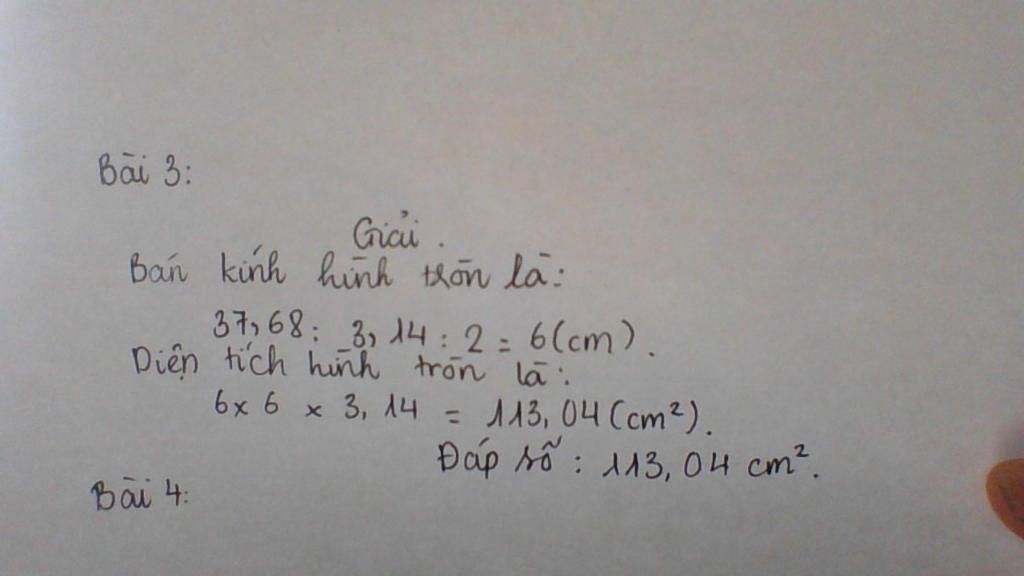 Bài 3:
Giải.
Bán kính hình tròn là:
37,68 : 3,14 : 2 = 6 (cm).
Diện tích hình tròn là:
6 x 6 x 3,14 = 113,04 (cm²).
Đáp số : 113,04 cm².
Bài 4: